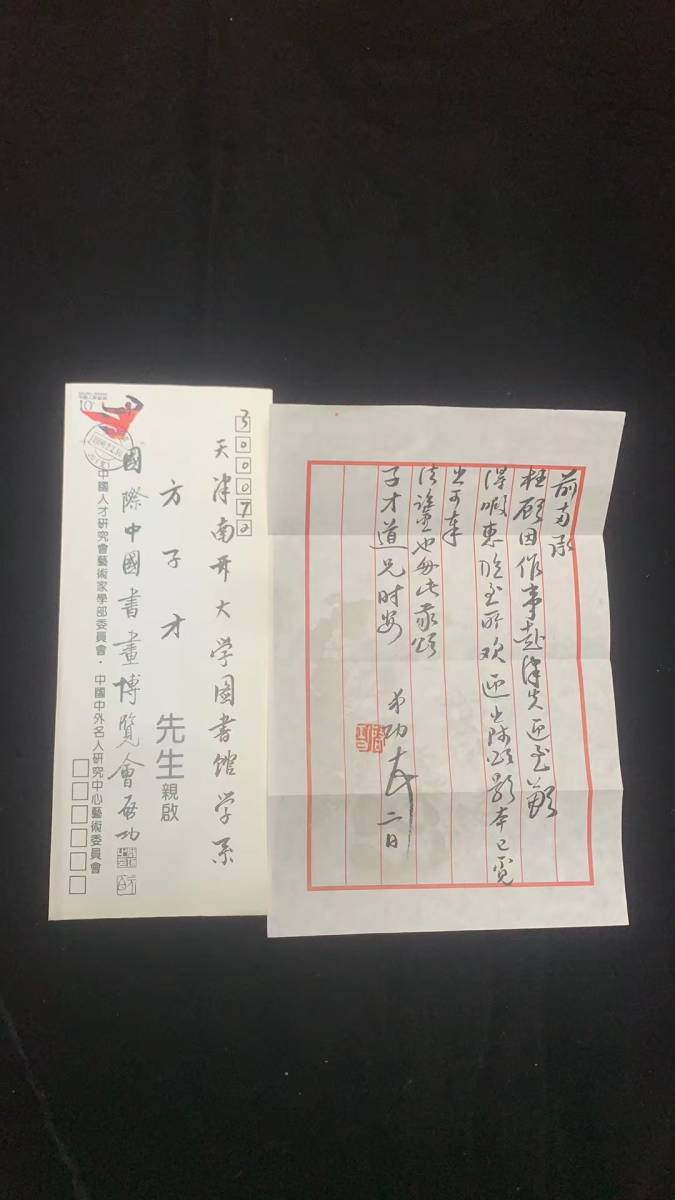 300072
天津南开大学图书馆学系
方子才
先生親啟
國際中國書畫博覽會啟功
中國人才研究會藝術家學部委員會・中國中外名人研究中心藝術委員會
10
前曾承
枉顾因作事赴津失迎至歉
得暇惠臨至所欢迎
影本已觅
出可奉
法鑒也專此敬頌
子才道兄时安
弟功
二日